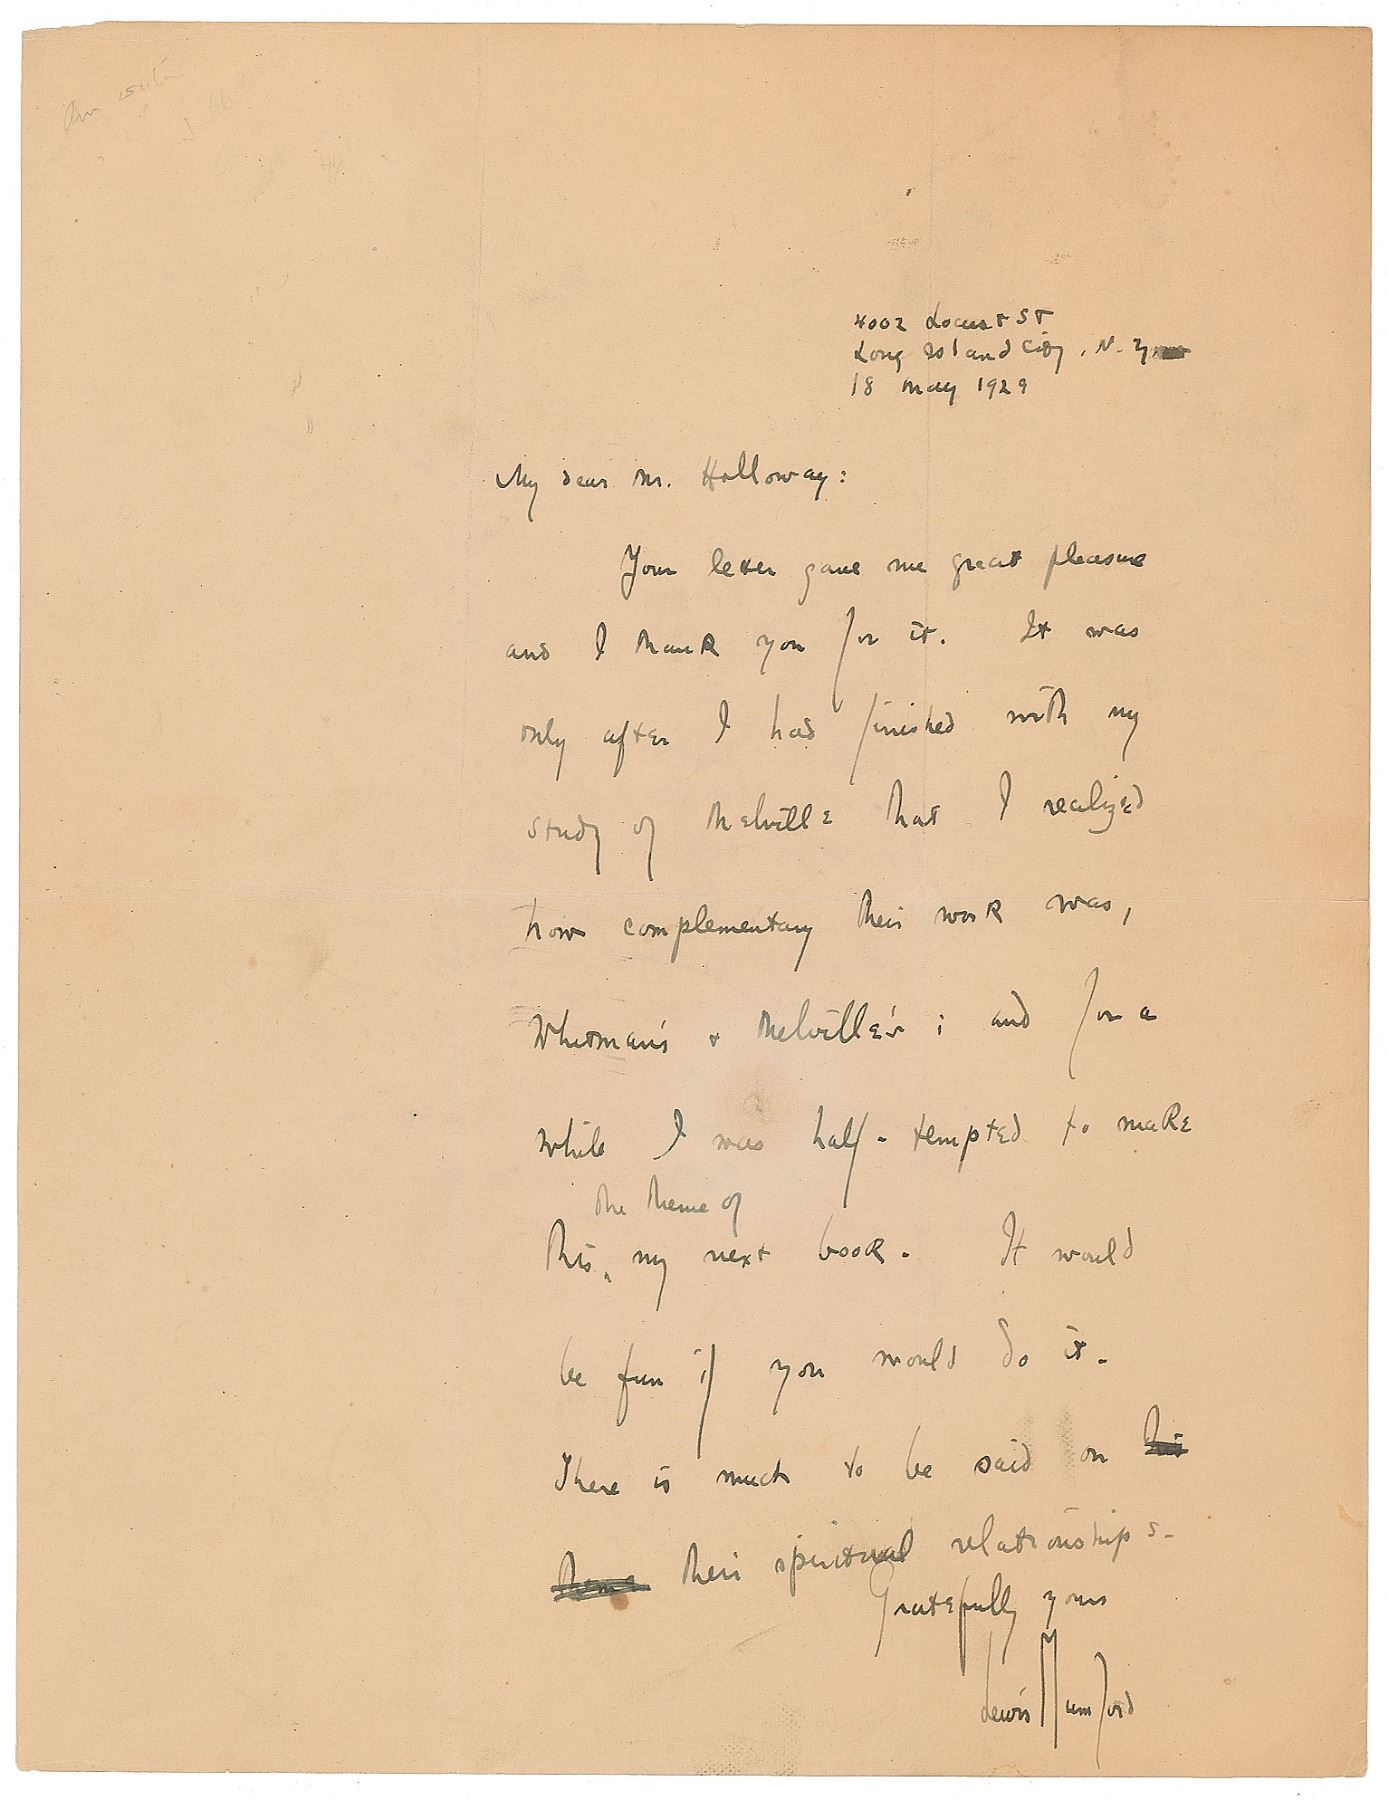 4002 Locust St
Long Island City, N.Y.
18 May 1929
My dear Mr. Holloway:
Your letter gave me great pleasure
and I thank you for it. It was
only after I had finished with my
study of Melville that I realized
how complementary their work was,
Whitman's & Melville's; and for a
while I was half-tempted to make
the theme of
this ‸ my next book. It would
be fun if you would do it.
There is much to be said on this
theme their spiritual relationships.
Gratefully yours
Lewis Mumford